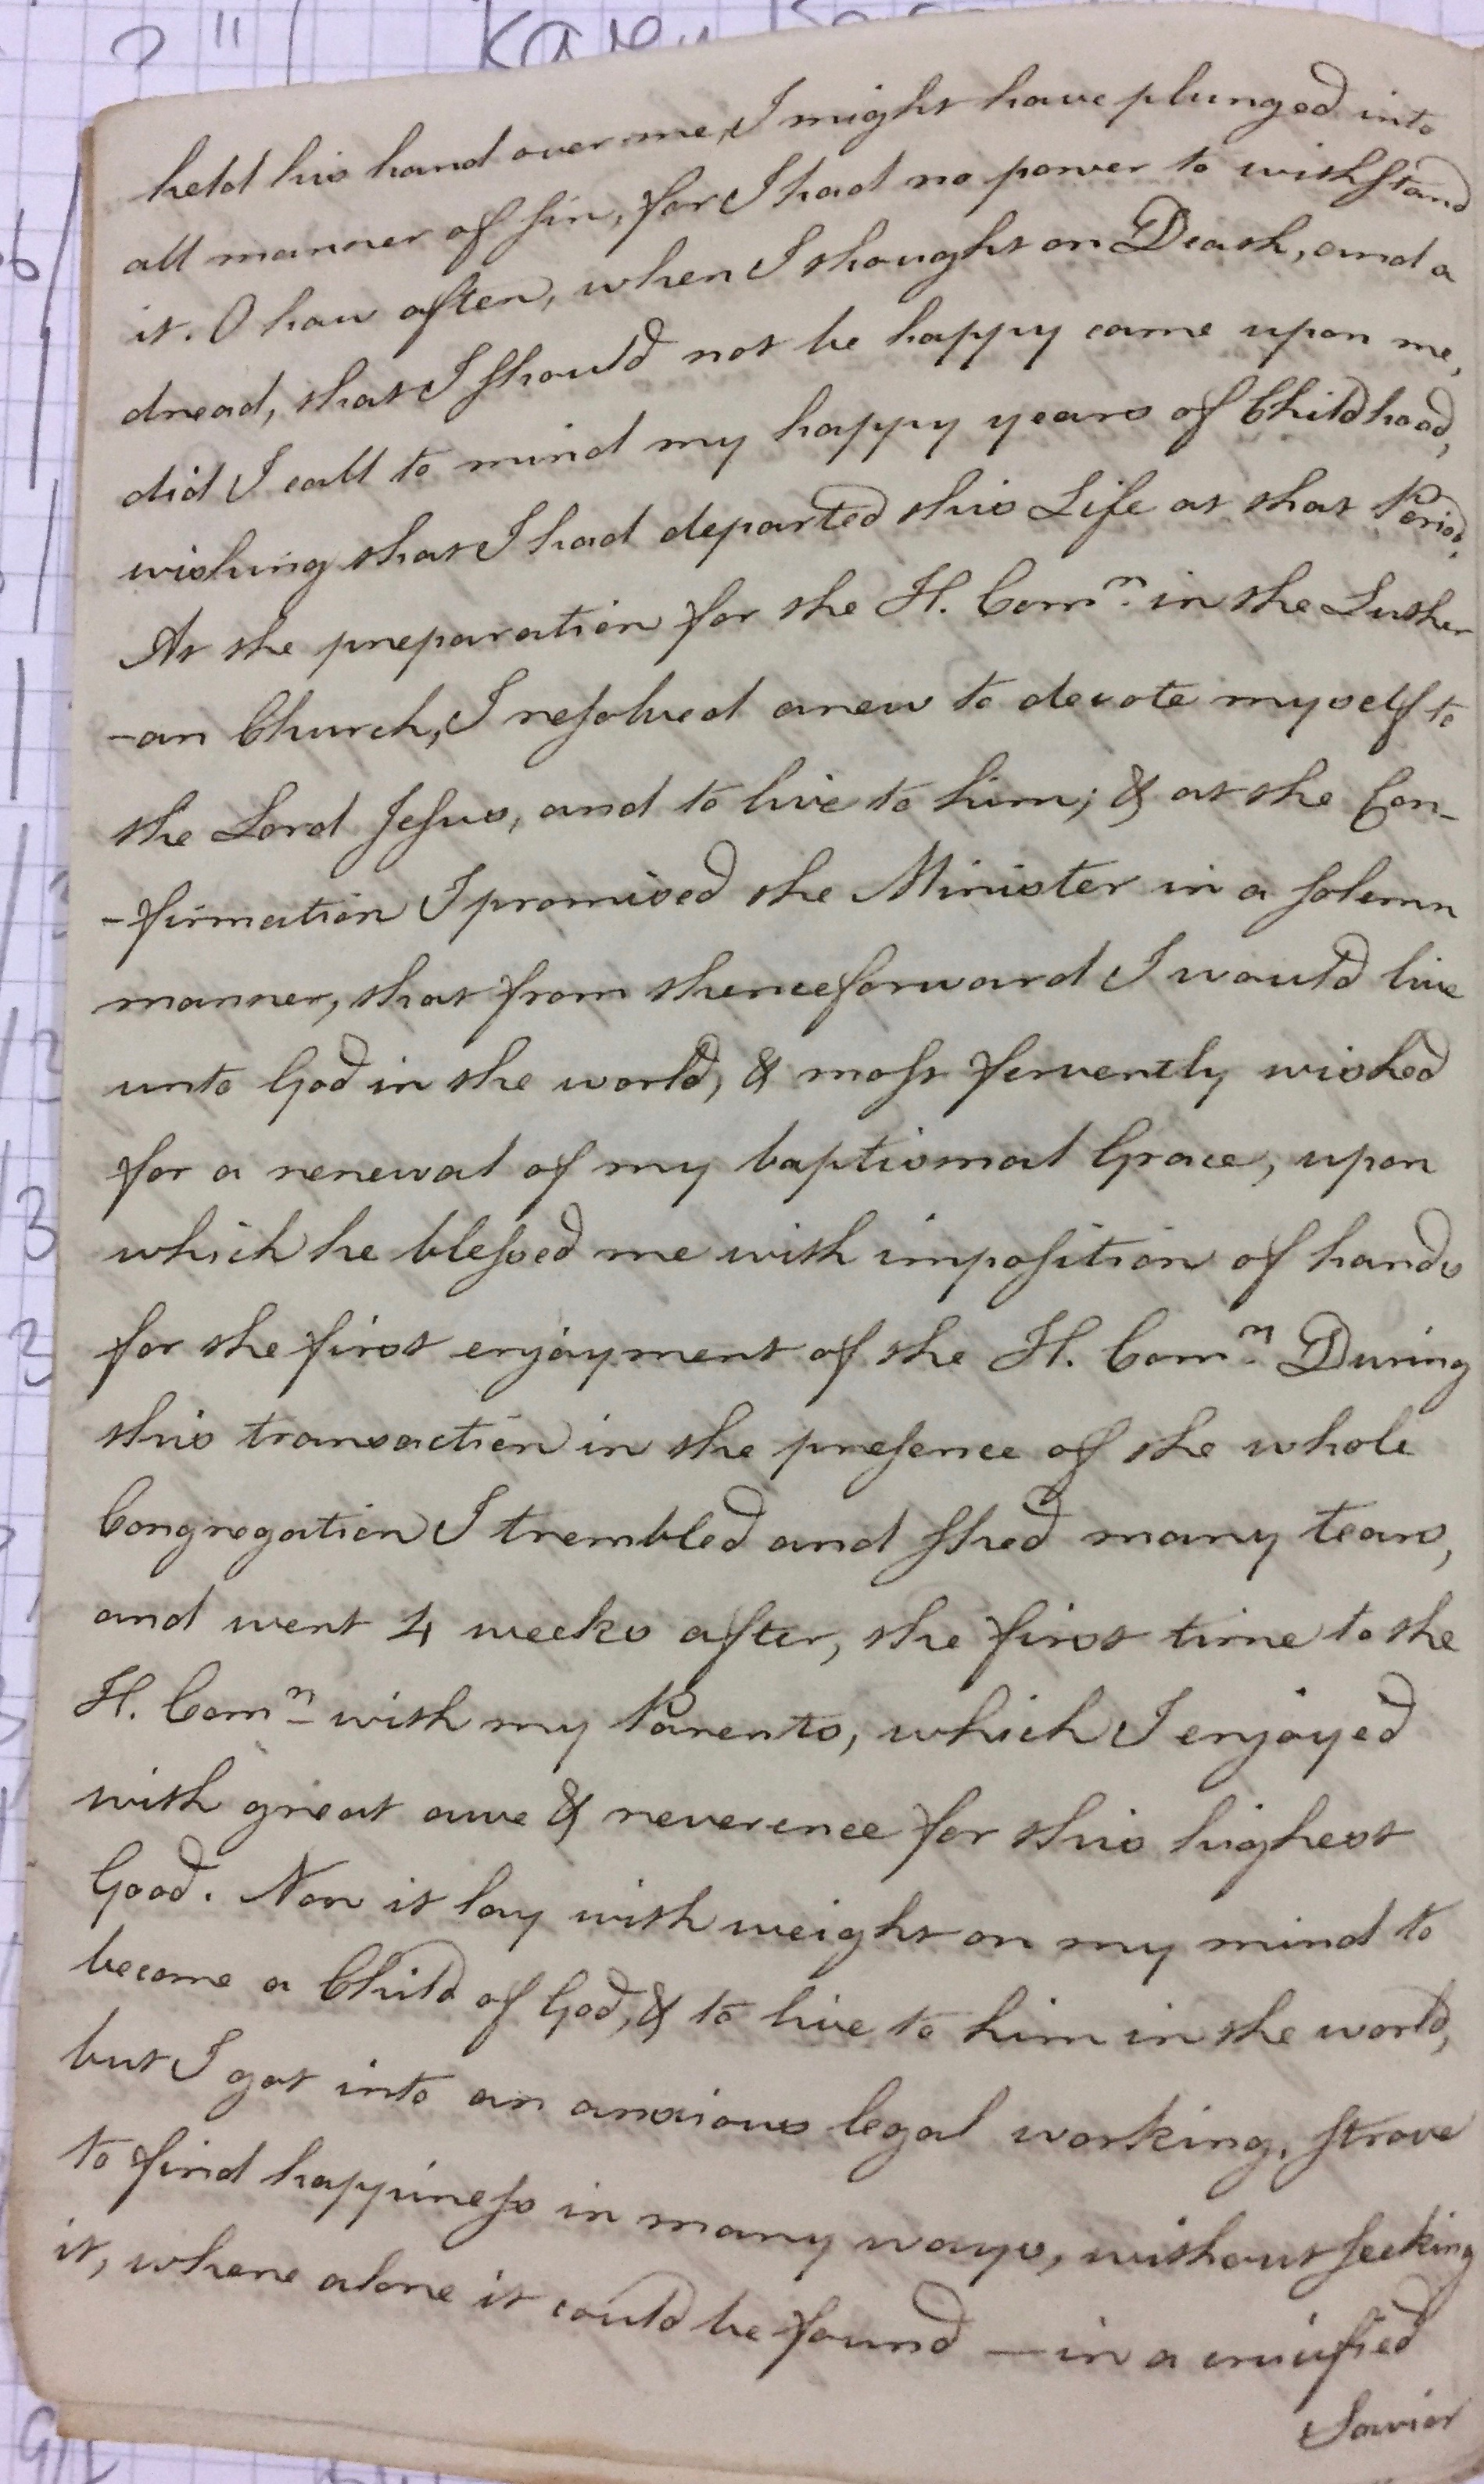 held his hand over me, I might have plunged into
all manner of sin, for I had no power to withstand
it. O how often, when I thought on Death, and a
dread, that I should not be happy came upon me,
did I call to mind my happy years of Childhood,
wishing that I had departed this Life at that Period.
At the preparation for the H. Comn. in the Luther
-an Church, I resolved anew to devote myself to
the Lord Jesus, and to live to him; & at the Con-
-firmation I promised the Minister in a solemn
manner, that from thenceforward I would live
unto God in the world, & most fervently wished
for a renewal of my baptismal Grace, upon
which he blessed me with imposition of hands
for the first enjoyment of the H. Comn. During
this transaction in the presence of the whole
Congregation I trembled and shed many tears,
and went 4 weeks after, the first time to the
H. Comn. with my Parents, which I enjoyed
with great awe & reverence for this highest
Good. Now it lay with weight on my mind to
become a Child of God, & to live to him in the world,
but I got into an anxious legal working, strove
to find happiness in many ways, without seeking
it, where alone it could be found — in a crucified
Savior